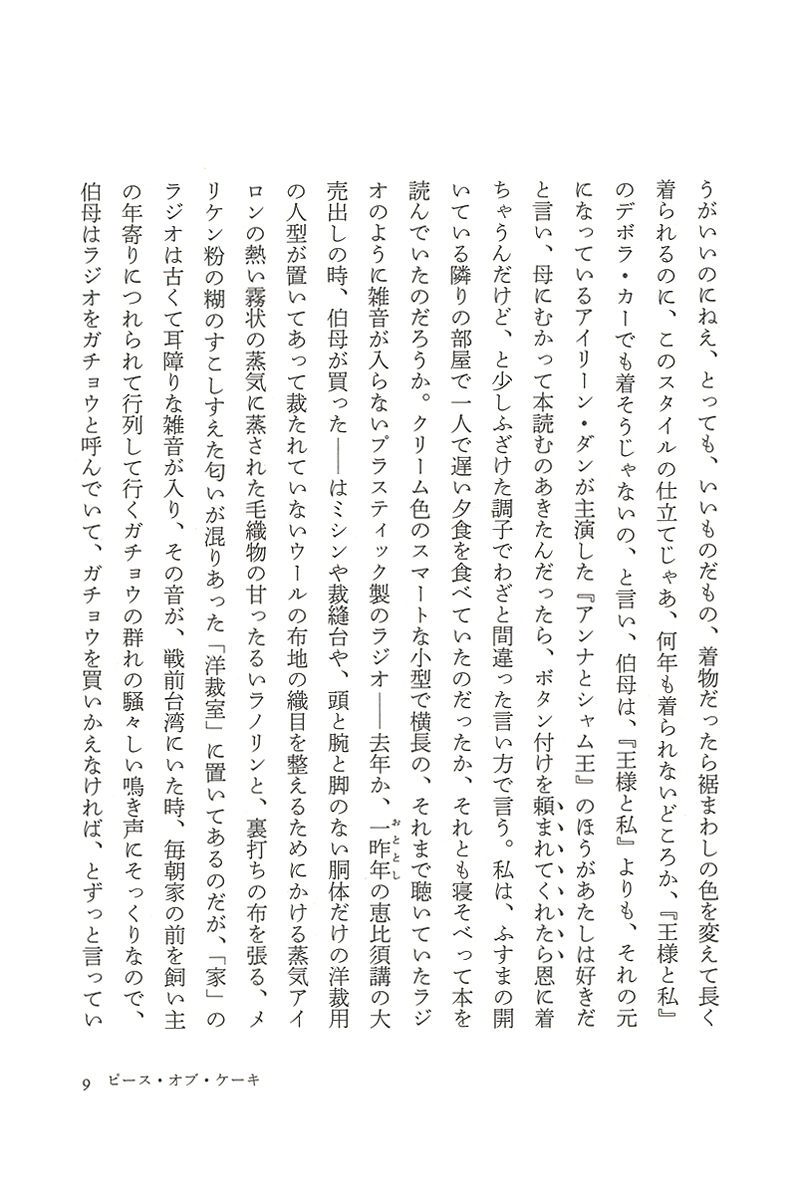 うがいいのにねえ、とっても、いいものだもの、着物だったら裾まわしの色を変えて長く
着られるのに、このスタイルの仕立てじゃあ、何年も着られないどころか、『王様と私』
のデボラ・カーでも着そうじゃないの、と言い、伯母は、『王様と私』よりも、それの元
になっているアイリーン・ダンが主演した『アンナとシャム王』のほうがあたしは好きだ
と言い、母にむかって本読むのあきたんだったら、ボタン付けを頼まれてくれたら恩に着
ちゃうんだけど、と少しふざけた調子でわざと間違った言い方で言う。私は、ふすまの開
いている隣りの部屋で一人で遅い夕食を食べていたのだったか、それとも寝そべって本を
読んでいたのだろうか。クリーム色のスマートな小型で横長の、それまで聴いていたラジ
オのように雑音が入らないプラスティック製のラジオ――去年か、一昨年の恵比須講の大
おととし
売出しの時、伯母が買った――はミシンや裁縫台や、頭と腕と脚のない胴体だけの洋裁用
の人型が置いてあって裁たれていないウールの布地の織目を整えるためにかける蒸気アイ
ロンの熱い霧状の蒸気に蒸された毛織物の甘ったるいラノリンと、裏打ちの布を張る、メ
リケン粉の糊のすこしすえた匂いが混りあった「洋裁室」に置いてあるのだが、「家」の
ラジオは古くて耳障りな雑音が入り、その音が、戦前台湾にいた時、毎朝家の前を飼い主
の年寄りにつれられて行列して行くガチョウの群れの騒々しい鳴き声にそっくりなので、
伯母はラジオをガチョウと呼んでいて、ガチョウを買いかえなければ、とずっと言ってい
9 ピース・オブ・ケーキ